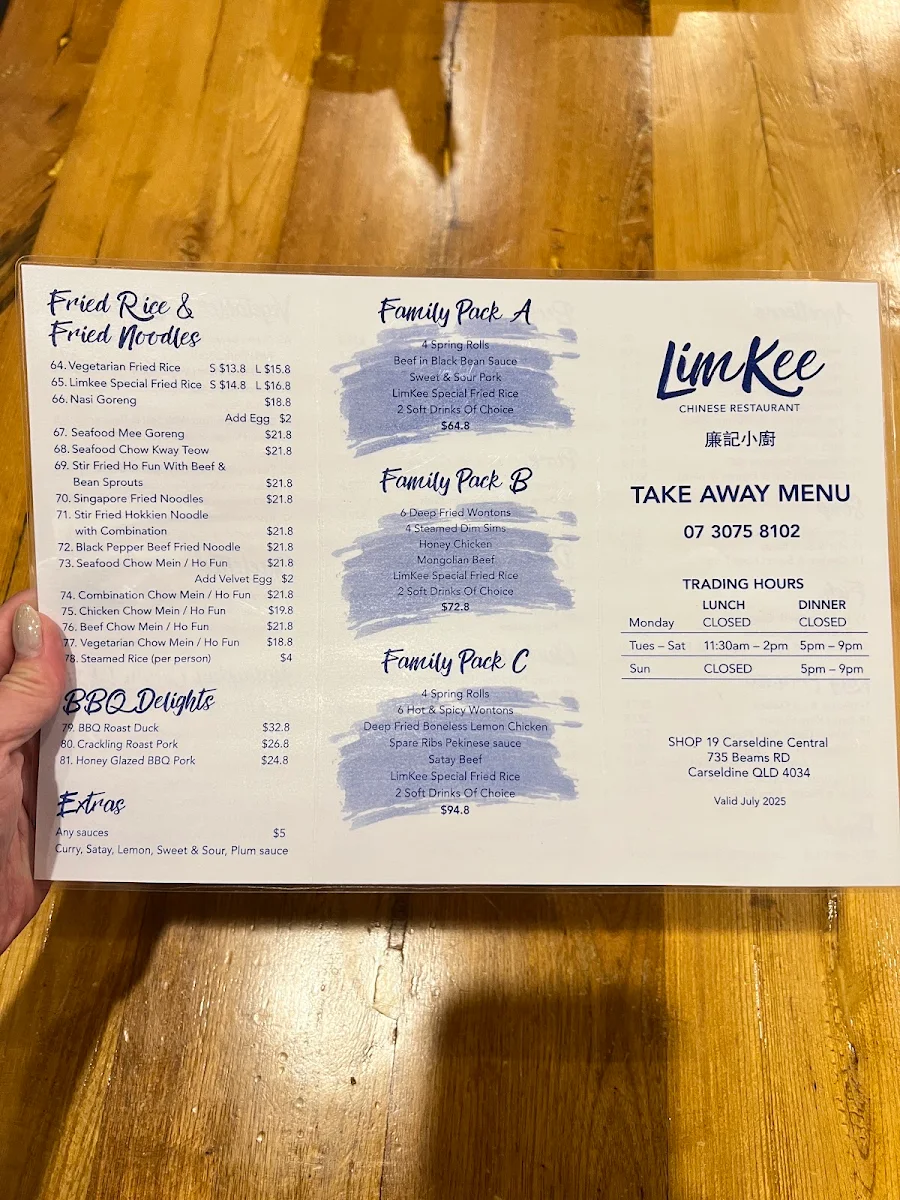 Fried Rice &
Fried Noodles
64. Vegetarian Fried Rice S $13.8 L $15.8
65. Limkee Special Fried Rice S $14.8 L $16.8
66. Nasi Goreng $18.8
Add Egg $2
67. Seafood Mee Goreng $21.8
68. Seafood Chow Kway Teow $21.8
69. Stir Fried Ho Fun With Beef &
Bean Sprouts $21.8
70. Singapore Fried Noodles $21.8
71. Stir Fried Hokkien Noodle
with Combination $21.8
72. Black Pepper Beef Fried Noodle $21.8
73. Seafood Chow Mein / Ho Fun $21.8
Add Velvet Egg $2
74. Combination Chow Mein / Ho Fun $21.8
75. Chicken Chow Mein / Ho Fun $19.8
76. Beef Chow Mein / Ho Fun $21.8
77. Vegetarian Chow Mein / Ho Fun $18.8
78. Steamed Rice (per person) $4
BBQ Delights
79. BBQ Roast Duck $32.8
80. Crackling Roast Pork $26.8
81. Honey Glazed BBQ Pork $24.8
Extras
Any sauces $5
Curry, Satay, Lemon, Sweet & Sour, Plum sauce
Family Pack A
4 Spring Rolls
Beef in Black Bean Sauce
Sweet & Sour Pork
LimKee Special Fried Rice
2 Soft Drinks Of Choice
$64.8
Family Pack B
6 Deep Fried Wontons
4 Steamed Dim Sims
Honey Chicken
Mongolian Beef
LimKee Special Fried Rice
2 Soft Drinks Of Choice
$72.8
Family Pack C
4 Spring Rolls
6 Hot & Spicy Wontons
Deep Fried Boneless Lemon Chicken
Spare Ribs Pekinese sauce
Satay Beef
LimKee Special Fried Rice
2 Soft Drinks Of Choice
$94.8
LimKee
CHINESE RESTAURANT
廉記小廚
TAKE AWAY MENU
07 3075 8102
TRADING HOURS
LUNCH DINNER
Monday CLOSED CLOSED
Tues – Sat 11:30am – 2pm 5pm – 9pm
Sun CLOSED 5pm – 9pm
SHOP 19 Carseldine Central
735 Beams RD
Carseldine QLD 4034
Valid July 2025